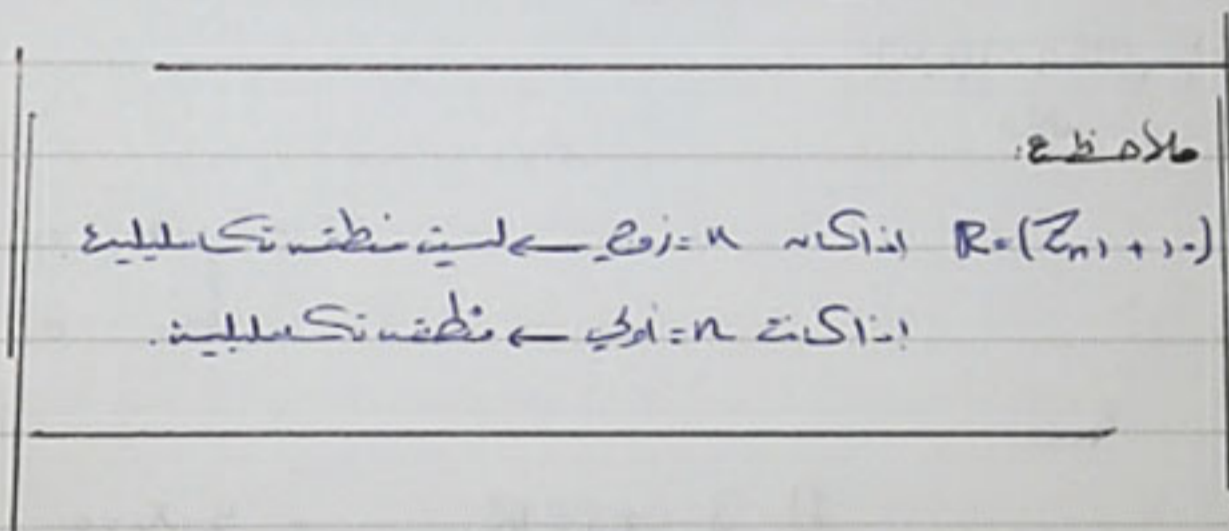 ملاحظة:
R=(Zn, +, .) اذا كان n = زوجي ← ليست منطقة تكاملية
اذا كانت n = أولي ← منطقة تكاملية.